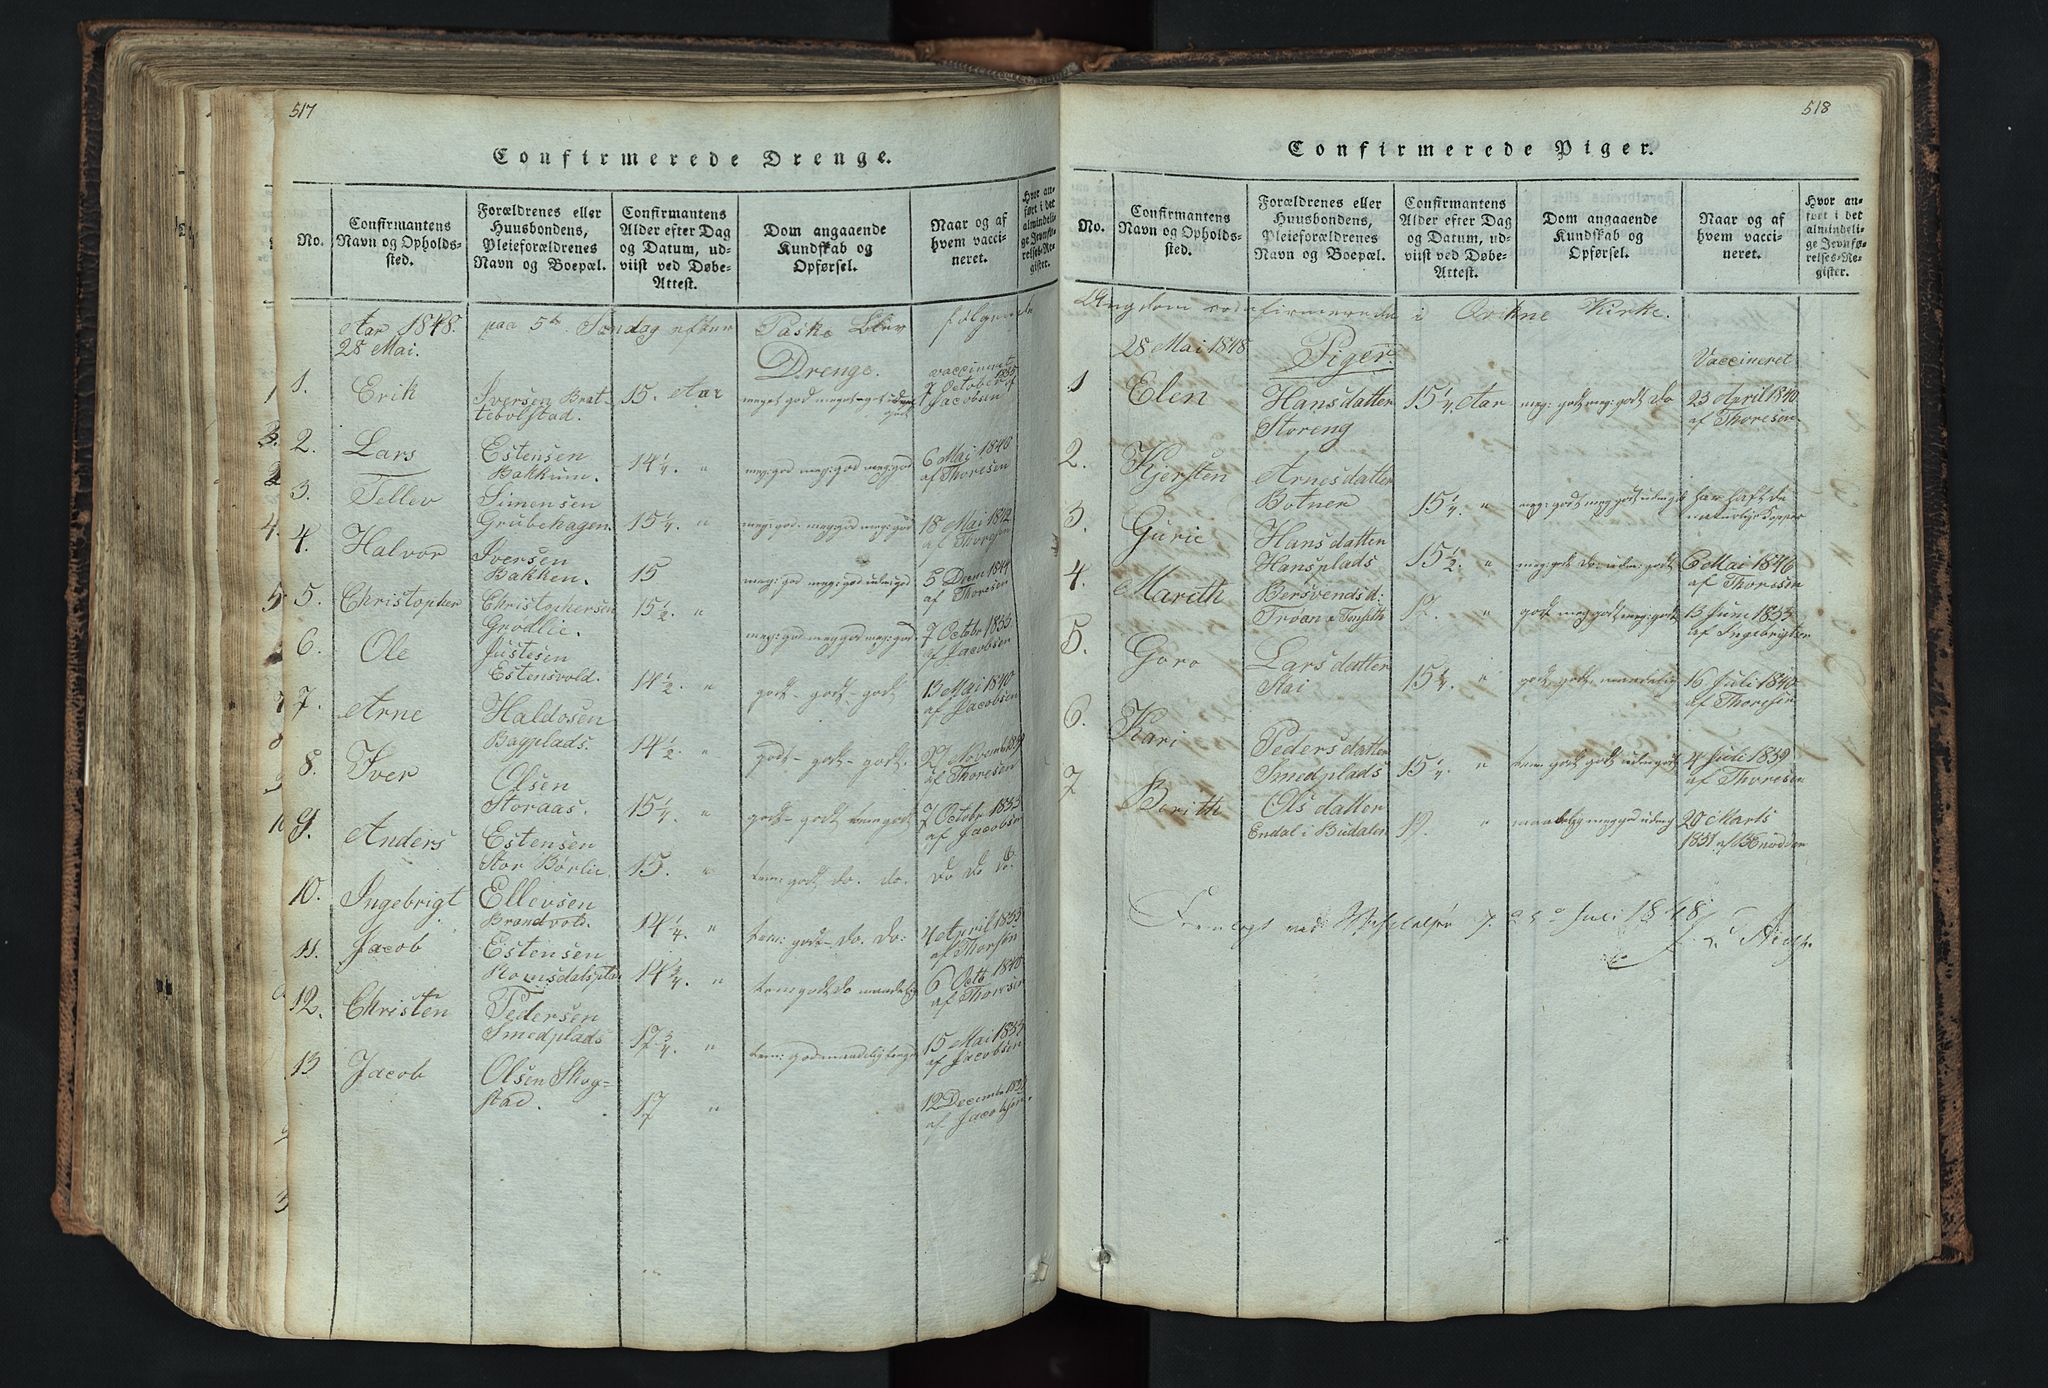 517
Confirmerede Drenge.
No.
Confirmantens Navn og Opholdssted.
Forældrenes eller Huusbondens, Pleieforældrenes Navn og Boepæl.
Confirmantens Alder efter Dag og Datum, udviist ved Døbe-Attest.
Dom angaaende Kundskab og Opførsel.
Naar og af hvem vaccineret.
Hvor anført i det almindelige Jevnførelses-Register.
Aar 1848. paa 5te Søndag efter Paaske blev følgende
28 Mai. Drenge. vaccineret
1. Erik Iversen Brattebolstad. 15. Aar meget god meget god 7 October 1835 af Jacobsen
2. Lars Estensen Bakkum. 14 1/4. " meg: god meg: god meg: god 6 Mai 1840 af Thoresen
3. Tellev Simensen Grubehagen 15 1/4. " meg: god. meg: god meg: god 18 Mai 1842 af Thoresen
4. Halvor Iversen Bakken. 15 meg: god meg: god udm: god 5 Decm 1844 af Thoresen
5. Christopher Christophersen Grødlie. 15 1/2. " meg: god meg god meg: god 7 Octobr 1833 af Jacobsen
6. Ole Justesen Estensvold. 14 1/2. " godt - godt - godt 13 Mai 1840 af Jacobsen
7. Arne Haldosen Bagplads. 14 1/2. " godt - godt - godt. 22 Novemb af Thoresen
8. Iver Olsen Storaas. 15 1/4. " godt - godt tem godt 7 Octobr 1833 af Jacobsen
9. Anders Estensen Stor Børlie. 15. " tem: godt do. do. do do do.
10. Ingebrigt Ellevsen Brandvold. 14 1/4. " tem: godt - do. do: 4 April 1835 af Thorsen
11. Jacob Estensen Romsdalsplas 14 3/4. " tem: godt do maadelig 6 Octb 1840 af Thoresen
12. Christen Pedersen Smedplads 17 3/4. " tem: god maadelig 15 Mai 1833 af Jacobsen
13 Jacob Olsen Skogstad. 17 " 12 December af Jacobsen.
518
Confirmerede Piger.
No.
Confirmantens Navn og Opholdssted.
Forældrenes eller Huusbondens, Pleieforældrenes Navn og Boepæl.
Confirmantens Alder efter Dag og Datum, udviist ved Døbe-Attest.
Dom angaaende Kundskab og Opførsel.
Naar og af hvem vaccineret.
Hvor anført i det almindelige Jevnførelses-Register.
Ungdom confirmerede i Kirke.
28 Mai 1848 Piger Vaccineret
1 Elen Hansdatter Storeng 15 1/4 Aar meg: godt meg: godt do 23 April 1840 af Thoresen
2. Kjersten Arnesdatter Botner 15 1/4. " meg: godt meg godt udm godt har haft de naturlige Kopper
3. Gurie Hansdatter Hansplads 15 1/2. " meg: godt do: udm: godt 6 Mai 1846 af Thoresen
4. Marith Bersvendsd: Trøan i Tønseth " godt meg godt meg: godt 13 Juni 1833 af Ingebrigtsen
5. Goro Larsdatter Stai 15 1/4. " godt godt maadelig 16 Juli 1840 af Thoresen
6. Kari Pedersdatter Smedplads 15 1/4. " tem: godt godt udm: godt 4 Juli 1839 af Thoresen
7 Berith Olsdatter Endal i Budalen 19. " maadelig meg god udm g 20 Marts 1831 af
Juli 1848